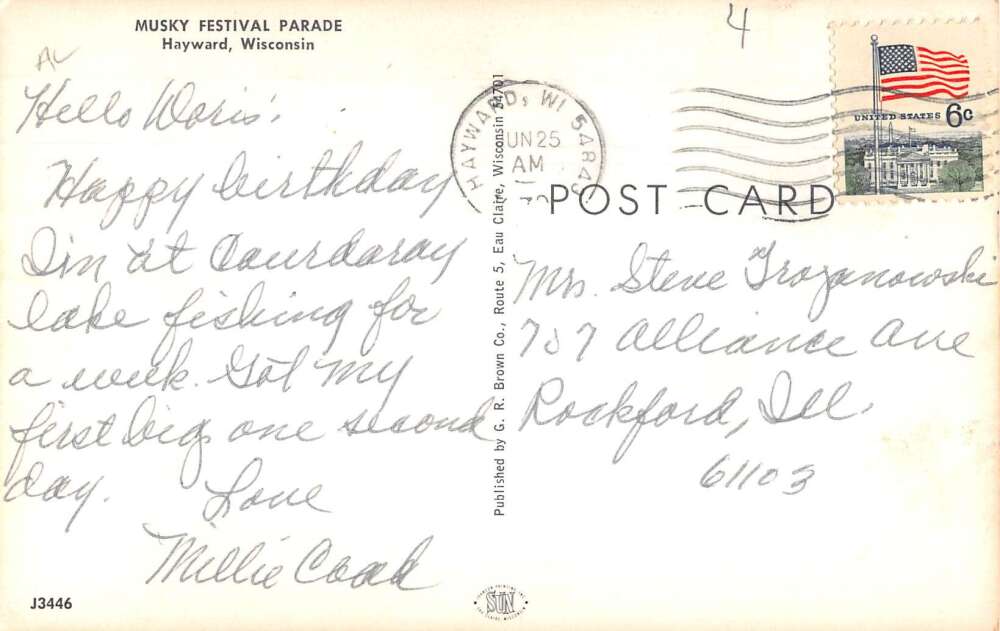 MUSKY FESTIVAL PARADE
Hayward, Wisconsin
4
Hello Doris!
Happy birthday
I'm at Courdaray
lake fishing for
a week. Got my
first big one second
day. Love
Millie Cook
J3446
Published by G. R. Brown Co., Route 5, Eau Claire, Wisconsin 54701
HAYWARD, WI 54843
JUN 25
AM
UNITED STATES 6c
POST CARD
Mrs. Steve Trojanowski
737 Alliance Ave
Rockford, Ill.
61103
SUN